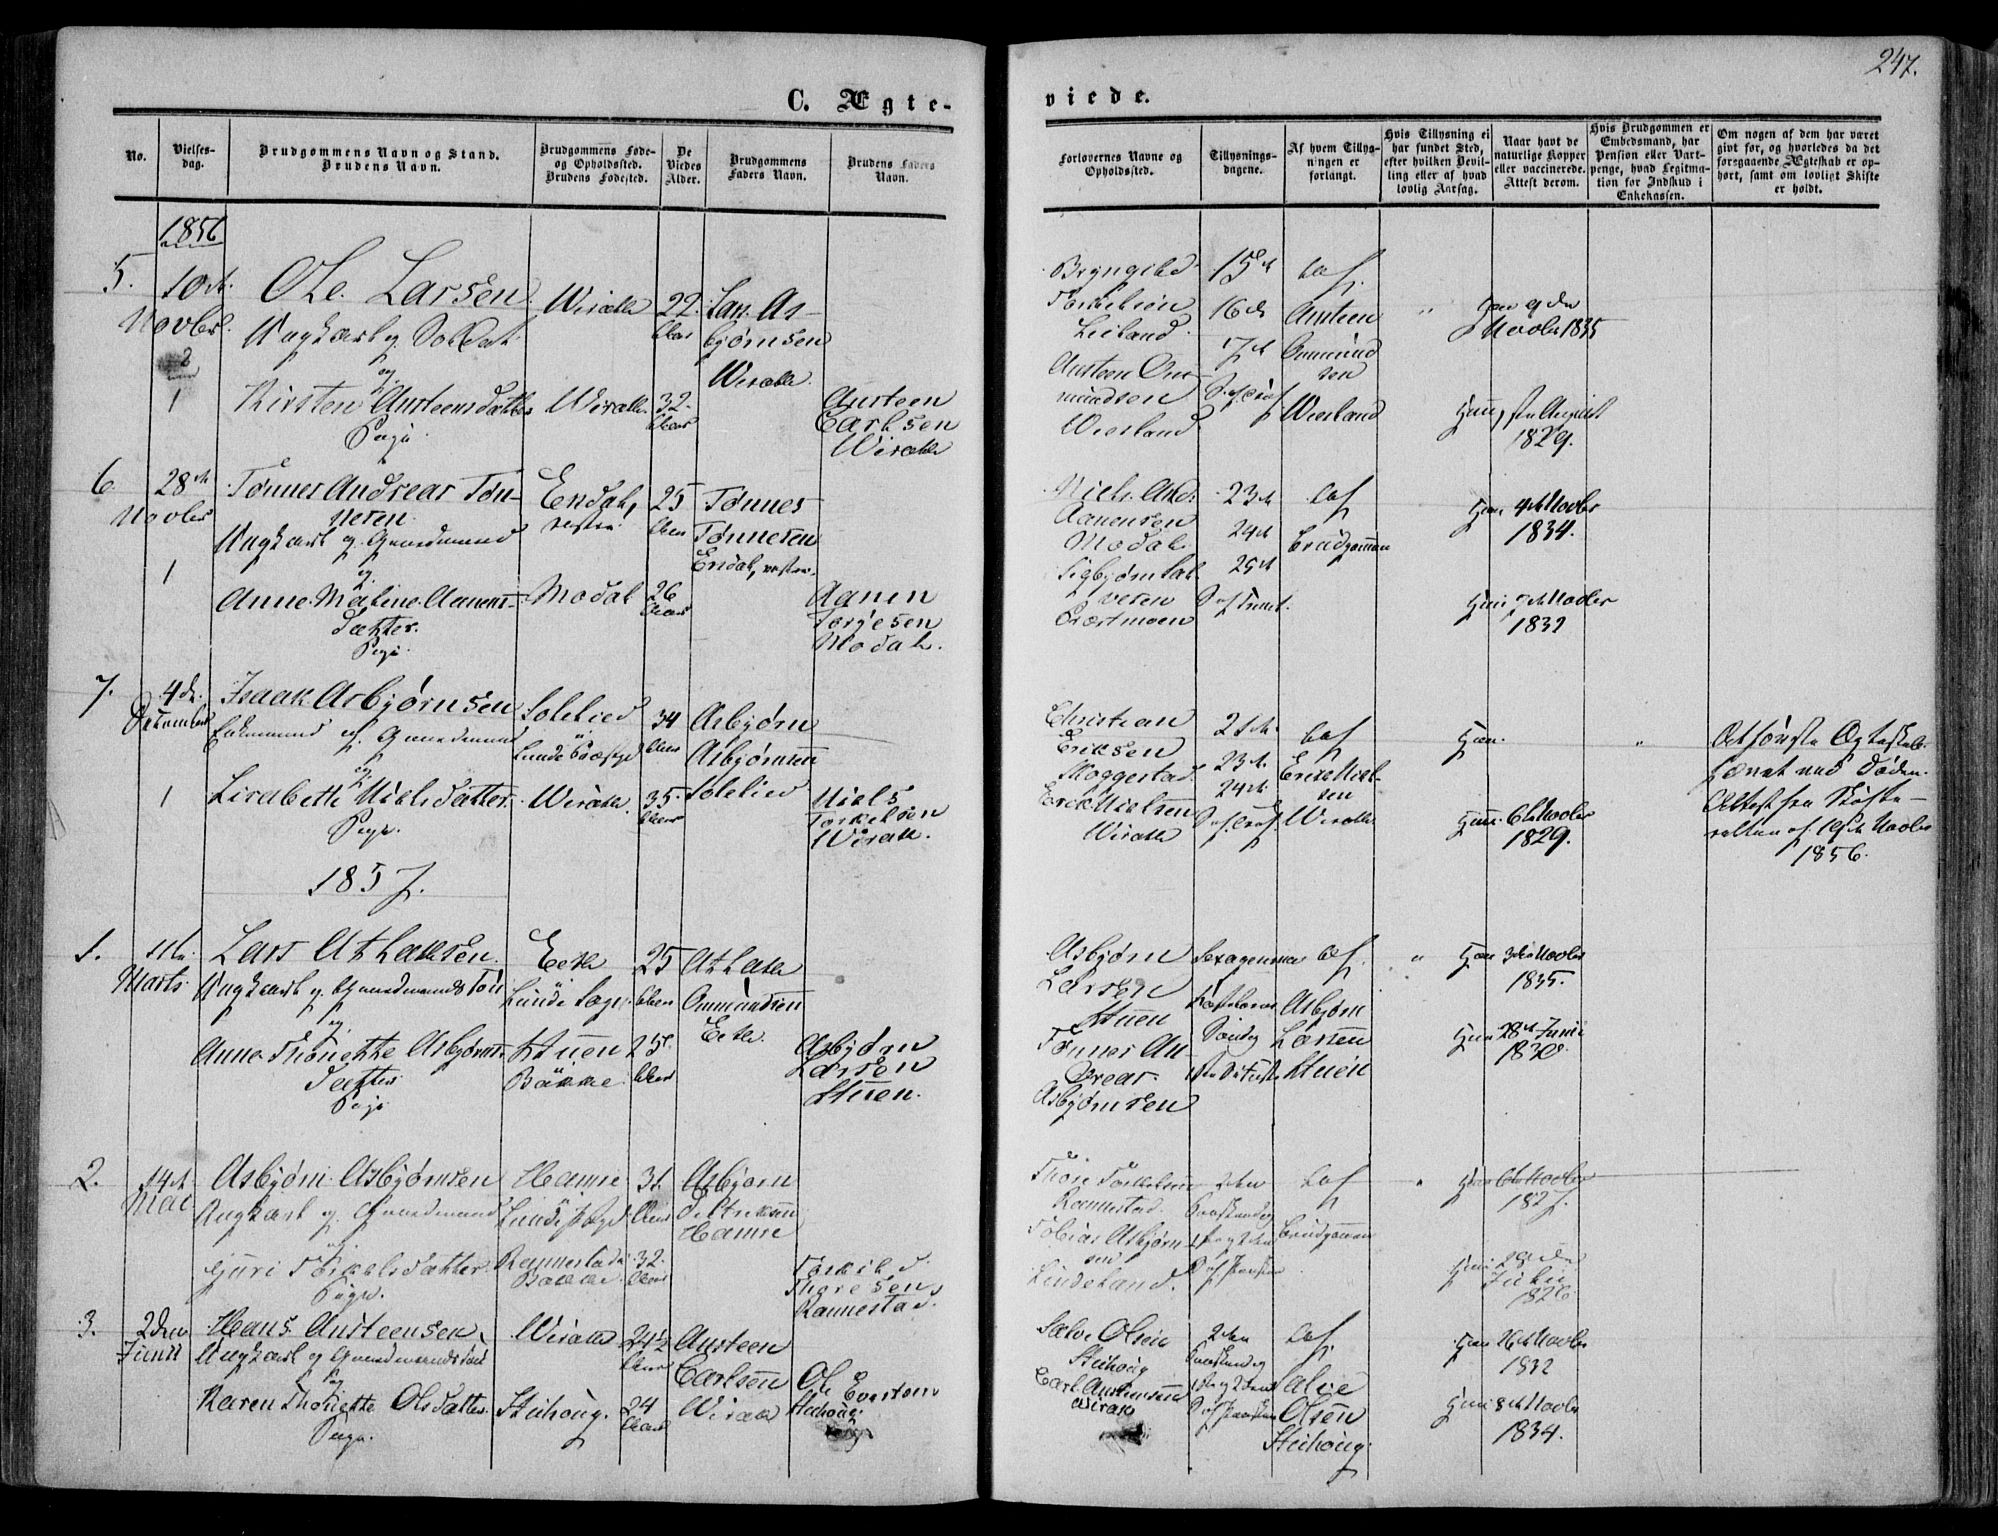 247.
C. Ægte-
viede.
No.
Vielses-
dag.
Brudgommens Navn og Stand.
Brudens Navn.
Brudgommens Føde-
og Opholdssted.
Brudens Fødested.
De
Viedes
Alder.
Brudgommens
Faders Navn.
Brudens Faders
Navn.
Forlovernes Navne og
Opholdssted.
Tillysnings-
dagene.
Af hvem Tillys-
ningen er
forlangt.
Hvis Tillysning ei
har fundet Sted,
efter hvilken Bevil-
ling eller af hvad
lovlig Aarsag.
Naar havt de
naturlige Kopper
eller vaccinerede.
Attest derom.
Hvis Brudgommen er
Embedsmand, har
Pension eller Vart-
penge, hvad Legitma-
tion for Indskud i
Enkekassen.
Om nogen af dem har været
givt for, og hvorledes da det
foregaaende Ægteskab er op-
hørt, samt om lovligt Skifte
er holdt.
1856
5.
10de
Novbr.
Ole Larsen
Ungkarl og Soldat
og
1
Kirsten Austeensdatter
Pige
Wirak
22
Aar
Wirak
32
Aar
Lars As-
bjørnsen
Wirak
Austeen
Carlsen
Wirak
Leiland
Austeen Om-
mundsen
Wersland
15de
16de
17de
af
Austeen
Ommund
sen
Wersland
9de
Novbr 1835
August
1829.
6
28de
Novbr
Tønnes Andreas Tøn-
nesen
Ungkarl og Gaardmand
og
1
Anne Maline Aanens-
datter
Pige
Endal,
vestre
25
Aar
Modal
26
Aar
Tønnes
Tønnesen
Endal, vestre
Aanen
Torjesen
Modal.
Niels And.
Aanensen
Modal
Sigbjørn Sal-
vesen
23de
24de
25de
af
Brudgommen
4de Novbr
1834.
Novbr
1832
7.
4de
December
Isaak Asbjørnsen
Enkemand og Gaardmand
og
1
Lisabeth Nielsdatter
Pige.
Solelied
Lunde
34
Aar
Wirak
35
Aar
Asbjørn
Asbjørnsen
Solelied
Niels
Torkelsen
Wirak.
Christian
Eriksen
Skoggestad
Erik Nielsen
Wirak
21de
23de
24de
af
Erik Niel-
sen
Wirak
6te Novbr
1829.
Det første Ægteskab
hævet ved Døden.
Attest fra Skifte-
retten af 19de Novbr
1856.
1857.
1.
11te
Marts
Lars Athaksen
Ungkarl og Gaardmandssøn
og
Anne Thonette Asbjørns-
datter
Pige
Eek
Lunde Sogn
25
Aar
Stuen
Bakke
25
Aar
Athak
Ommundsen
Eek
Asbjørn
Larsen
Stuen.
Asbjørn
Larsen
Stuen
Tønnes An-
dreas
Asbjørnsen
Søndag
af
Asbjørn
Larsen
Stuen
3die Novbr
1835.
28de Junii
1830
2.
14de
Mai
Asbjørn Asbjørnsen
Ungkarl og Gaardmand
og
Guri Torkelsdatter
Pige.
Hamre
31
Aar
Rannestad
Bakke
32
Aar
Asbjørn
Hamre
Torkild
Thoresen
Rannestad.
Thore Torkelsen
Rannestad.
Tobias Asbjørn
sen
Lindeland.
2den
af
Brudgommen
6te Novbr
1827.
29de
Julii
1826
3.
2den
Junii
Hans Austeensen
Ungkarl og Gaardmandssøn
og
Karen Thonette Olsdatter
Pige.
Wirak
24½
Aar
24
Aar
Austeen
Carlsen
Wirak
Salve Olsen
Carl Austeensen
Wirak
2den
af
Salve
Olsen
26de Novbr
1832
8de Novbr
1834.